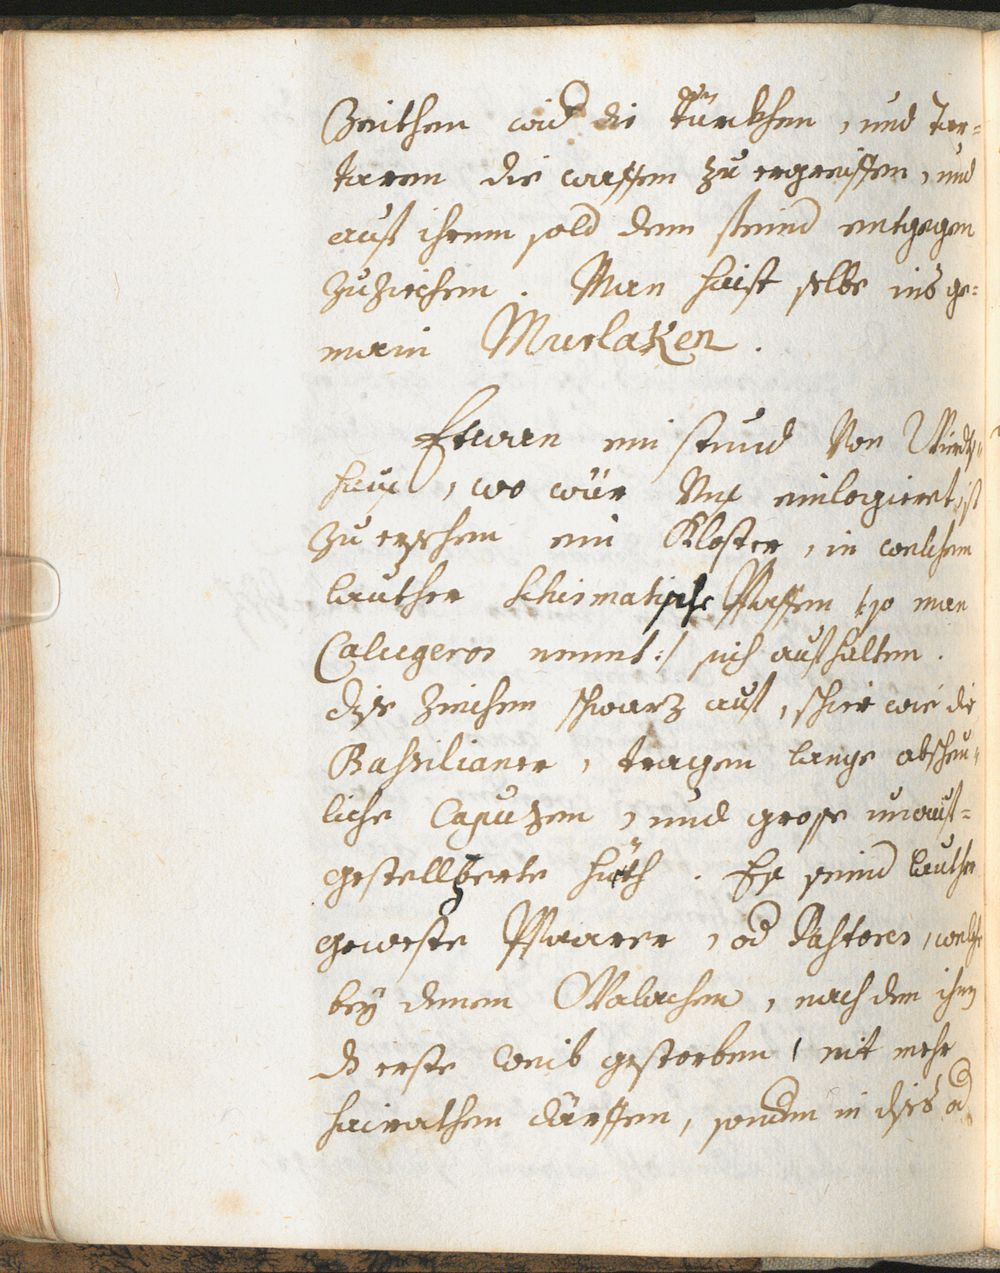 Zeithen wid die Türckhen, und Tar=
taren die waffen zu ergreiffen, und
auß ihrem sold dem feind entgegen
zuziechen. Man haist selbe ins ge=
main Murlaken.
Etwan ein stund von Würdts=
hauß, wo wür unß einlogieret, ist
zu ersehen ein Kloster, in welchem
lauther schismatische Pfaffen /: so man
Calugeros nennt :/ sich aufhalten.
dise ziechen schwarz auf, schier wie die
Bassilianer, tragen lange abscheu=
liche Capuzen, und grosse unauf=
gestellberte hüth. Es seind lauther
geweste Pfaarer, od Pastores, welche
bey denen Walachen, nach dem ihnen
ds erste weib gestorben, nit mehr
heirathen därffen, sondern in dises od